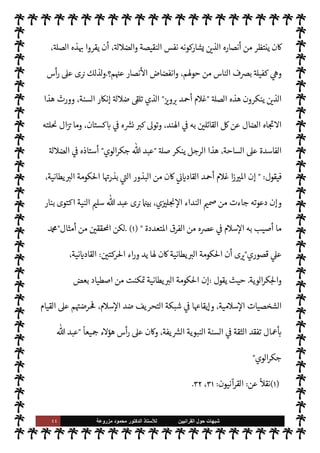 كان ينتظر من أنصاره الذين يشاركونه نفس النقيصة والضلالة، أن يقروا بهذه الصلة،
وهي كفيلة بصرف الناس من حولهم، وانفضاض الأنصار عنهم؟.ولذلك نرى على رأس
الذين ينكرون هذه الصلة "غلام أحمد برويز" الذي تلقى ضلالة إنكار السنة، وورث هذا
الاتجاه الضال عن كل القائلين به في الهند، وتولى كبر نشره في باكستان، وما تزال نحلته
الفاسدة على الساحة، هذا الرجل ينكر صلة "عبد الله جكرالوي" أستاذه في الضلالة
فيقول: " إن الميرزا غلام أحمد القادياني كان من البذور التي بذرتها الحكومة البريطانية،
وإن دعوته جاءت من صميم النداء الإنجليزي، بينما نرى عبد الله سليم النية اكتوى بنار
ما أصيب به الإسلام في عصره من الفرق المتعددة " (١) .لكن المحققين من أمثال"محمد
علي قصوري"يرى أن الحكومة البريطانية كان لها يد وراء الحركتين: القاديانية،
والجكرالوية. حيث يقول :إن الحكومة البريطانية تمكنت من اصطياد بعض
الشخصيات الإسلامية، وإيقاعها في شبكة التحريف ضد الإسلام، فحرضتهم على القيام
بأعمال تفقد الثقة في السنة النبوية الشريفة، وكان على رأس هؤلاء جميعاً "عبد الله
جكرالوي"
(١)نقلاً عن: القرآنيون: ٣١، ٣٢.
شبهات حول القرآنيين للأستاذ الدكتور محمود مزروعة ٤٤